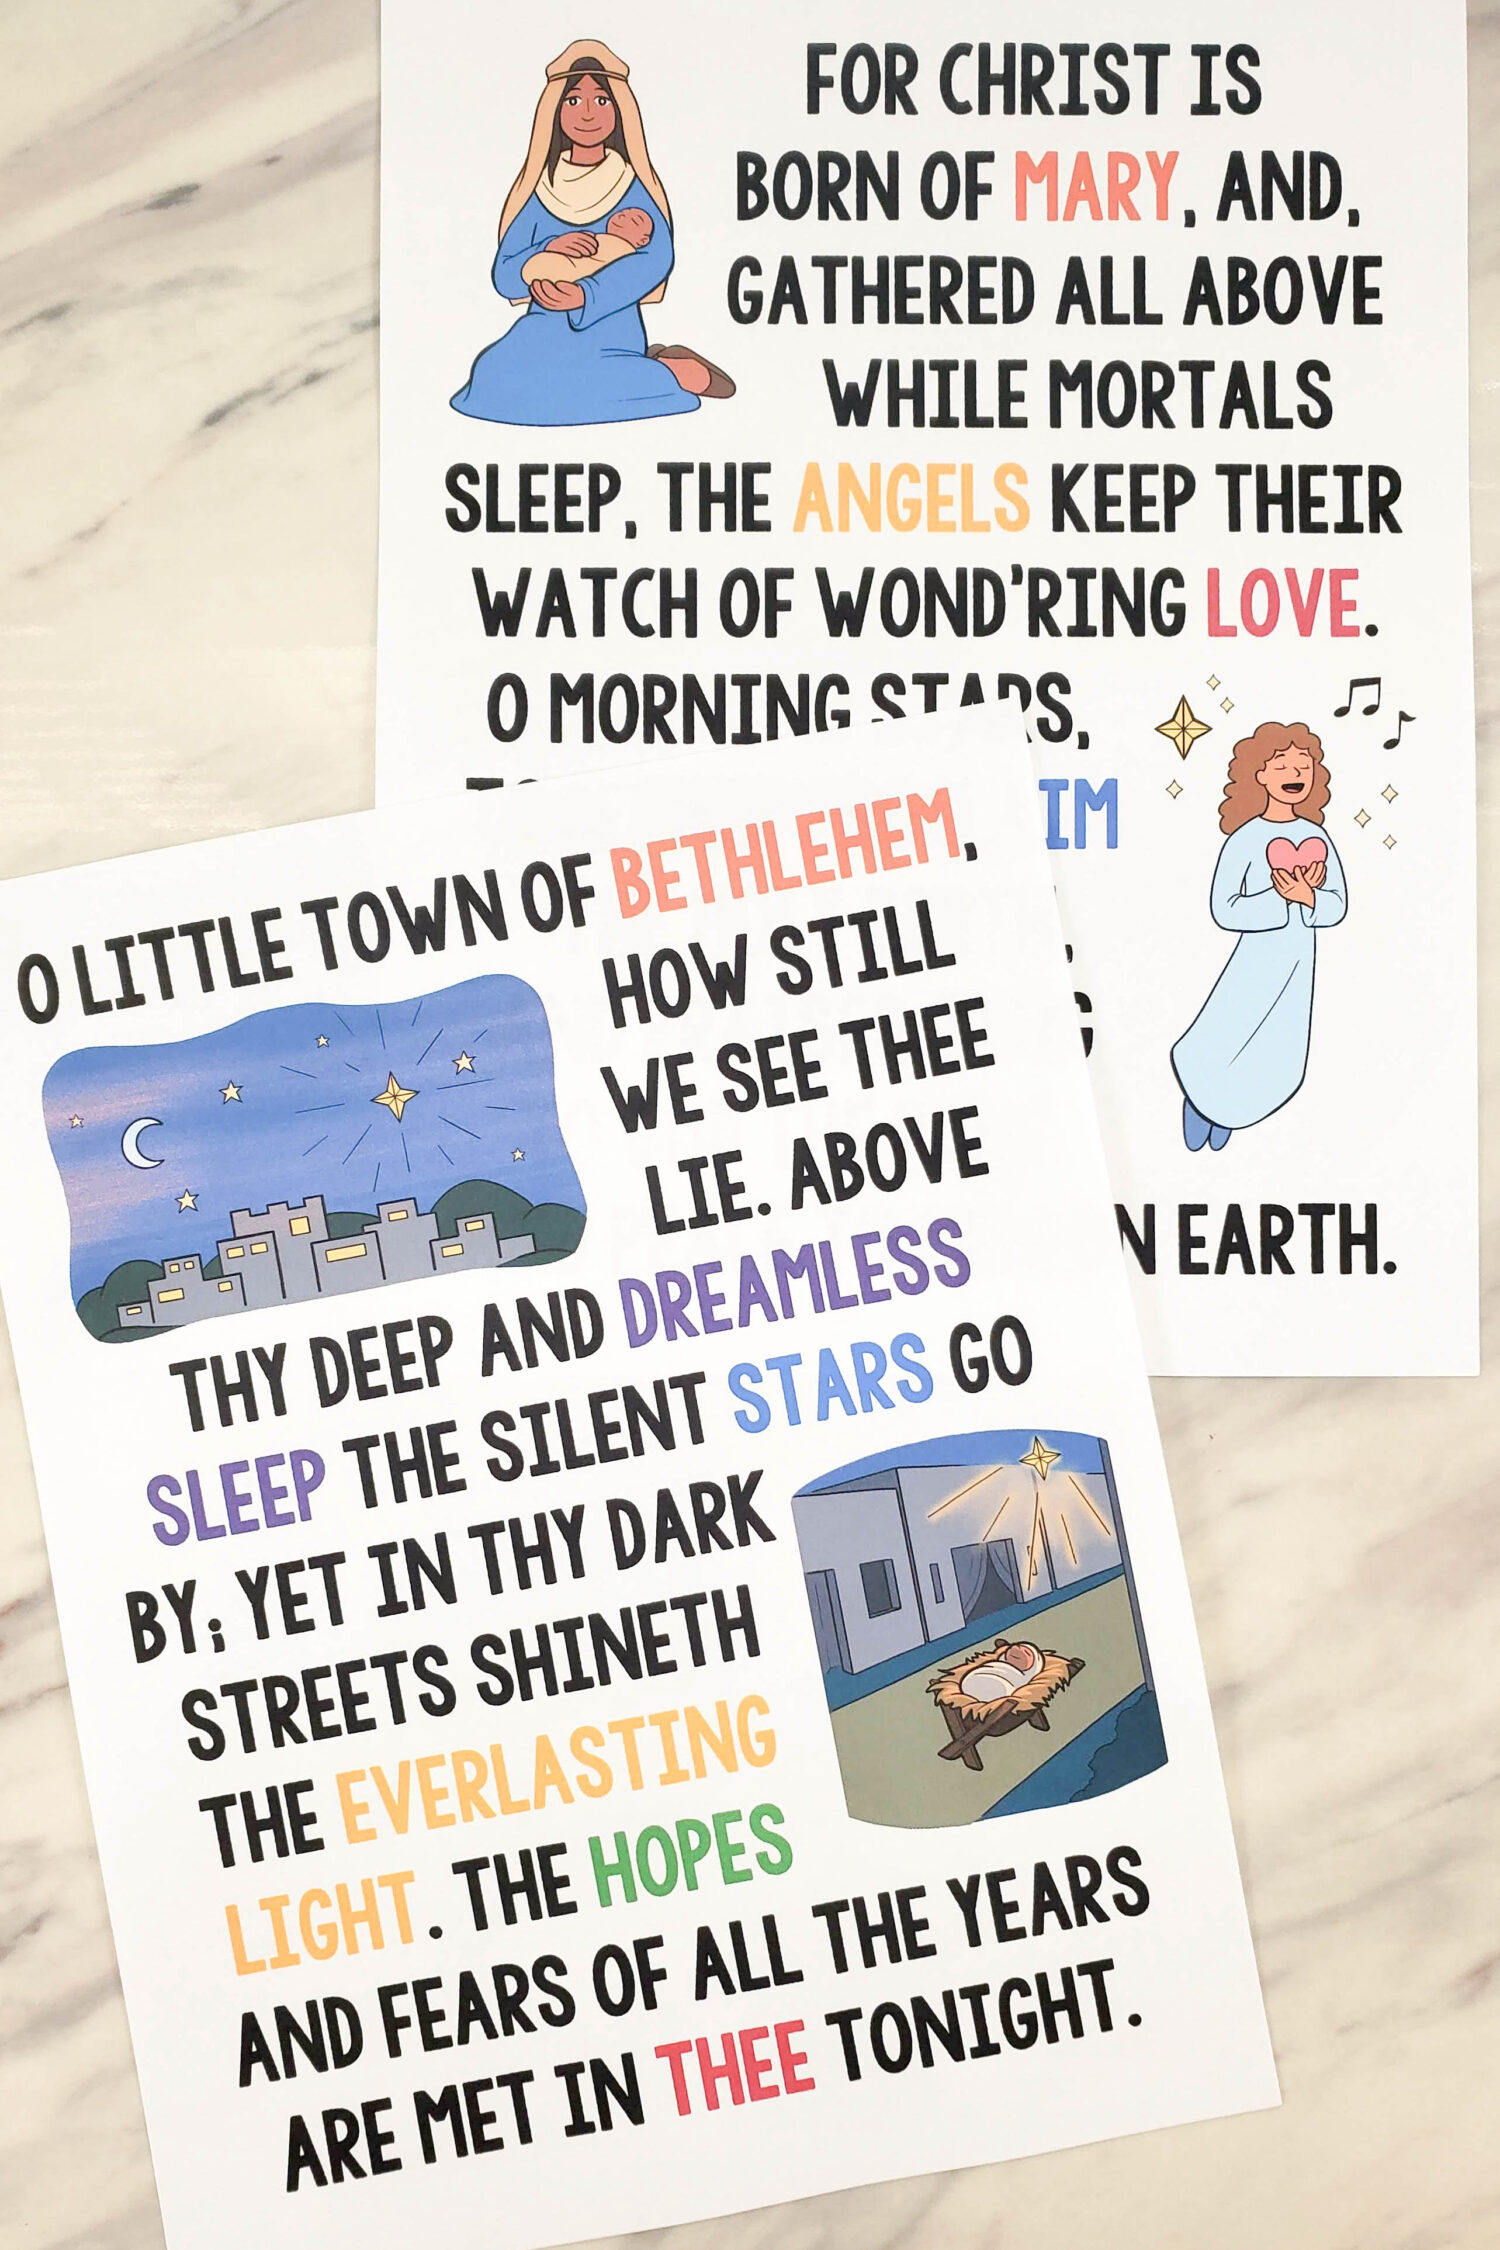 FOR CHRIST IS
BORN OF MARY, AND,
GATHERED ALL ABOVE
WHILE MORTALS
SLEEP, THE ANGELS KEEP THEIR
WATCH OF WOND'RING LOVE.
O MORNING STARS,
EARTH.
O LITTLE TOWN OF BETHLEHEM,
HOW STILL
WE SEE THEE
LIE. ABOVE
THY DEEP AND DREAMLESS
SLEEP THE SILENT STARS GO
BY; YET IN THY DARK
STREETS SHINETH
THE EVERLASTING
LIGHT. THE HOPES
AND FEARS OF ALL THE YEARS
ARE MET IN THEE TONIGHT.